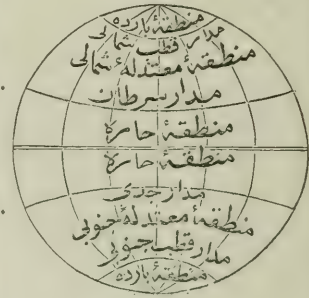 منطقهٔ بارده
مدار قطب شمالی
منطقهٔ معتدلهٔ شمالی
مدار سرطان
منطقهٔ حاره
منطقهٔ حاره
مدار جدی
منطقهٔ معتدلهٔ جنوبی
مدار قطب جنوبی
منطقهٔ بارده